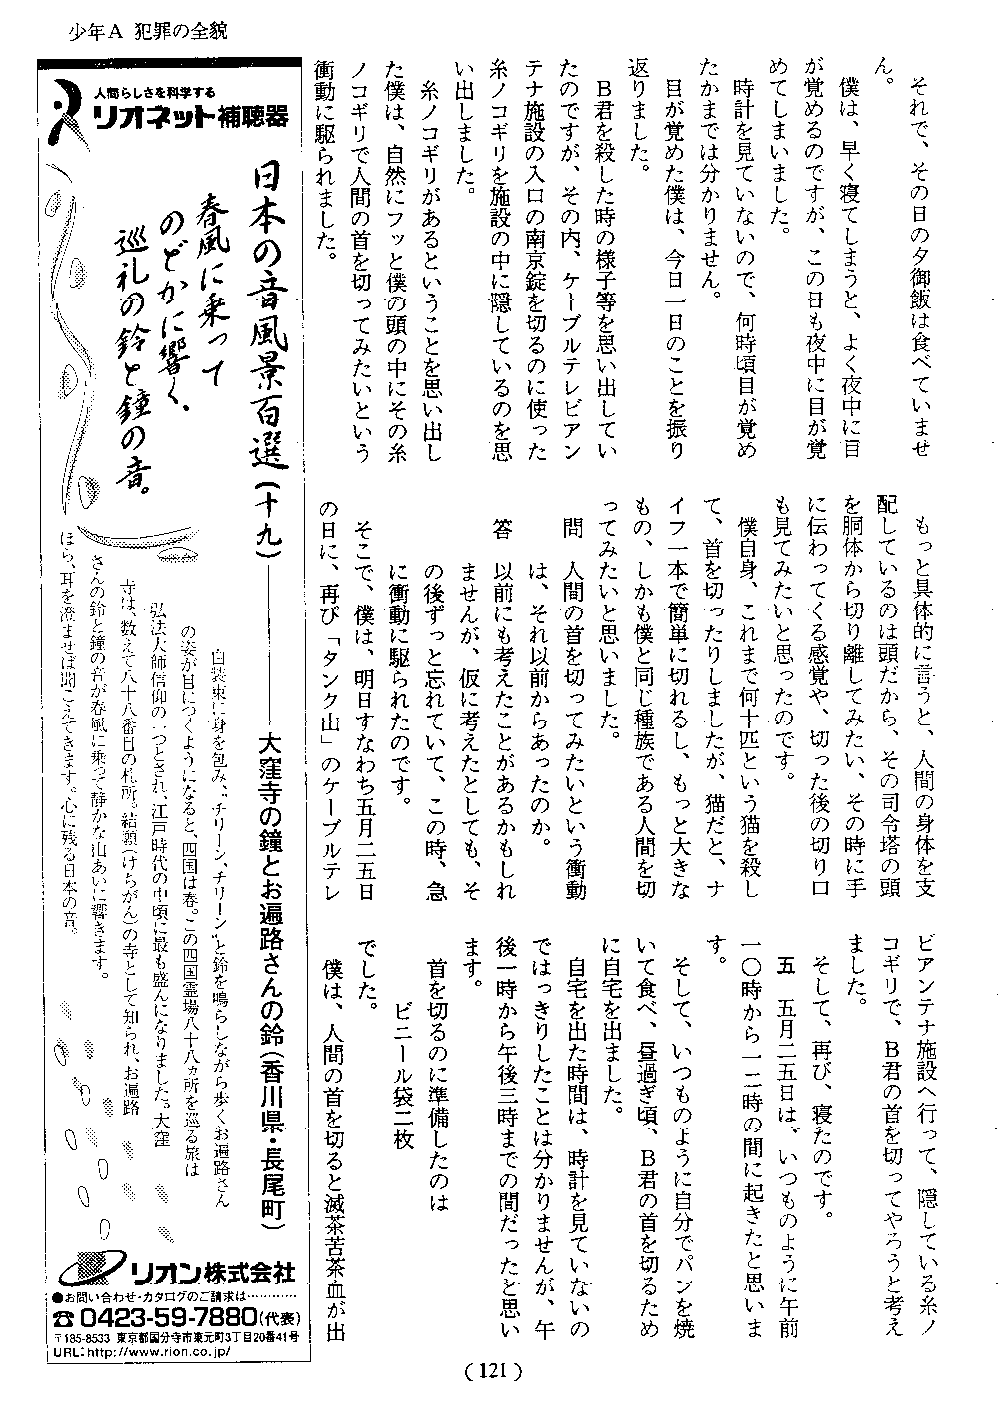 少年A 犯罪の全貌
それで、その日の夕御飯は食べていませ
ん。
僕は、早く寝てしまうと、よく夜中に目
が覚めるのですが、この日も夜中に目が覚
めてしまいました。
時計を見ていないので、何時頃目が覚め
たかまでは分かりません。
目が覚めた僕は、今日一日のことを振り
返りました。
B君を殺した時の様子等を思い出してい
たのですが、その内、ケーブルテレビアン
テナ施設の入口の南京錠を切るのに使った
糸ノコギリを施設の中に隠しているのを思
い出しました。
糸ノコギリがあるということを思い出し
た僕は、自然にフッと僕の頭の中にその糸
ノコギリで人間の首を切ってみたいという
衝動に駆られました。
もっと具体的に言うと、人間の身体を支
配しているのは頭だから、その司令塔の頭
を胴体から切り離してみたい、その時に手
に伝わってくる感覚や、切った後の切り口
も見てみたいと思ったのです。
僕自身、これまで何十匹という猫を殺し
て、首を切ったりしましたが、猫だと、ナ
イフ一本で簡単に切れるし、もっと大きな
もの、しかも僕と同じ種族である人間を切
ってみたいと思いました。
問 人間の首を切ってみたいという衝動
は、それ以前からあったのか。
答 以前にも考えたことがあるかもしれ
ませんが、仮に考えたとしても、そ
の後ずっと忘れていて、この時、急
に衝動に駆られたのです。
そこで、僕は、明日すなわち五月二五日
の日に、再び「タンク山」のケーブルテレ
ビアンテナ施設へ行って、隠している糸ノ
コギリで、B君の首を切ってやろうと考え
ました。
そして、再び、寝たのです。
五 五月二五日は、いつものように午前
一〇時から一二時の間に起きたと思いま
す。
そして、いつものように自分でパンを焼
いて食べ、昼過ぎ頃、B君の首を切るため
に自宅を出ました。
自宅を出た時間は、時計を見ていないの
ではっきりしたことは分かりませんが、午
後一時から午後三時までの間だったと思い
ます。
首を切るのに準備したのは
ビニール袋二枚
でした。
僕は、人間の首を切ると滅茶苦茶血が出
人間らしさを科学する
リオネット補聴器
日本の音風景百選(十九)――大窪寺の鐘とお遍路さんの鈴(香川県・長尾町)
春風に乗って
のどかに響く、
巡礼の鈴と鐘の音。
白装束に身を包み、“チリーン、チリーン”と鈴を鳴らしながら歩く、お遍路さん
の姿が目につくようになると、四国は春。この四国霊場八十八ヵ所を巡る旅は
弘法大師信仰の一つとされ、江戸時代の中頃に最も盛んになりました。大窪
寺は、数えて八十八番目の札所。結願(けちがん)の寺として知られ、お遍路
さんの鈴と鐘の音が春風に乗って静かな山あいに響きます。
ほら、耳を澄ませば聞こえてきます。心に残る日本の音。
リオン株式会社
●お問い合わせ・カタログのご請求は…………
☎0423-59-7880(代表)
〒185-8533 東京都国分寺市東元町3丁目20番41号
URL:http://www.rion.co.jp/
(121)